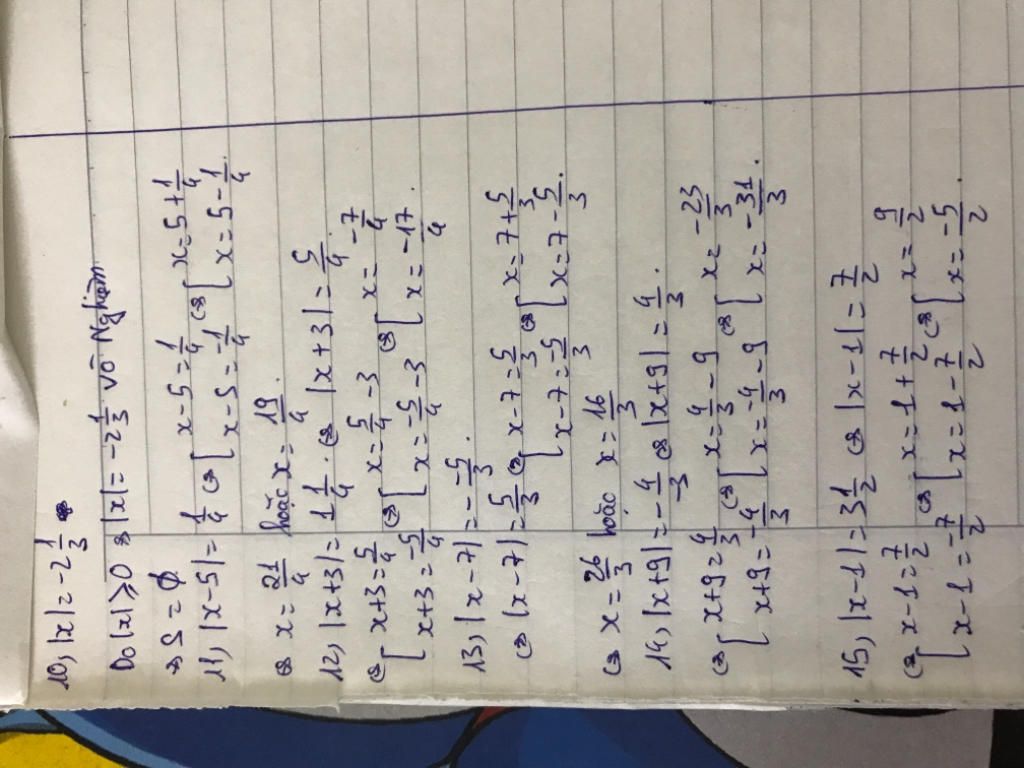 10, |x| = -2 1/3
Do |x| ≥ 0 ⇒ |x| = -2 1/3 vô Nghiệm
⇒ S = ∅
11, |x-5| = 1/4 ⇔ [ x-5 = 1/4 ⇔ [ x = 5 + 1/4
x-5 = -1/4 x = 5 - 1/4.
⇔ x = 21/4 hoặc x = 19/4.
12, |x+3| = 1 1/4. ⇔ |x+3| = 5/4
⇔ [ x+3 = 5/4 ⇔ [ x = 5/4 - 3 ⇔ [ x = -7/4
x+3 = -5/4 x = -5/4 - 3 x = -17/4.
13, |x-7| = - -5/3.
⇔ |x-7| = 5/3 ⇔ [ x-7 = 5/3 ⇔ [ x = 7 + 5/3
x-7 = -5/3 x = 7 - 5/3.
⇔ x = 26/3 hoặc x = 16/3
14, |x+9| = - 4/-3 ⇔ |x+9| = 4/3.
⇔ [ x+9 = 4/3 ⇔ [ x = 4/3 - 9 ⇔ [ x = -23/3
x+9 = -4/3 x = -4/3 - 9 x = -31/3.
15, |x-1| = 3 1/2 ⇔ |x-1| = 7/2
⇔ [ x-1 = 7/2 ⇔ [ x = 1 + 7/2 ⇔ [ x = 9/2
x-1 = -7/2 x = 1 - 7/2 x = -5/2.